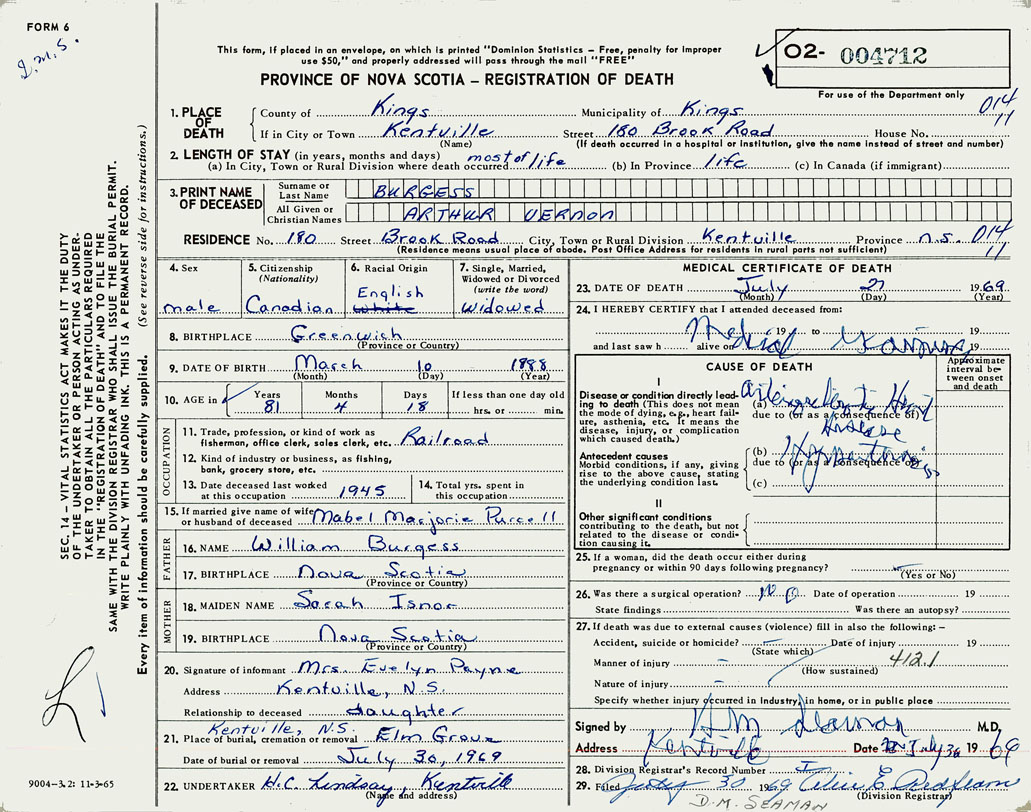 FORM 6
J.M.S.
This form, if placed in an envelope, on which is printed "Dominion Statistics – Free, penalty for improper
use $50," and properly addressed will pass through the mail "FREE"
PROVINCE OF NOVA SCOTIA – REGISTRATION OF DEATH
O2- 004712
For use of the Department only
014
11
1. PLACE OF DEATH
County of Kings Municipality of Kings
If in City or Town Kentville Street 180 Brook Road House No.
(Name) (If death occurred in a hospital or institution, give the name instead of street and number)
2. LENGTH OF STAY (in years, months and days)
(a) In City, Town or Rural Division where death occurred most of life (b) In Province life (c) In Canada (if immigrant)
3. PRINT NAME OF DECEASED
Surname or Last Name BURGESS
All Given or Christian Names ARTHUR VERNON
RESIDENCE No. 180 Street Brook Road City, Town or Rural Division Kentville Province n.s. 014
11
(Residence means usual place of abode. Post Office Address for residents in rural parts not sufficient)
4. Sex
male
5. Citizenship (Nationality)
Canadian
6. Racial Origin
English
White
7. Single, Married, Widowed or Divorced (write the word)
Widowed
8. BIRTHPLACE Greenwich
(Province or Country)
9. DATE OF BIRTH March 10 1888
(Month) (Day) (Year)
10. AGE in Years Months Days If less than one day old
81 4 18 hrs. or min.
OCCUPATION
11. Trade, profession, or kind of work as
fisherman, office clerk, sales clerk, etc. Railroad
12. Kind of industry or business, as fishing,
bank, grocery store, etc.
13. Date deceased last worked at this occupation 1945
14. Total yrs. spent in this occupation
15. If married give name of wife or husband of deceased Mabel Marjorie Purcell
FATHER
16. NAME William Burgess
17. BIRTHPLACE Nova Scotia
(Province or Country)
MOTHER
18. MAIDEN NAME Sarah Isnor
19. BIRTHPLACE Nova Scotia
(Province or Country)
20. Signature of informant Mrs. Evelyn Payne
Address Kentville, N.S.
Relationship to deceased daughter
Kentville, N.S.
21. Place of burial, cremation or removal Elm Grove
Date of burial or removal July 30, 1969
22. UNDERTAKER H.C. Lindsay, Kentville
(Name and address)
MEDICAL CERTIFICATE OF DEATH
23. DATE OF DEATH July 27 1969
(Month) (Day) (Year)
24. I HEREBY CERTIFY that I attended deceased from:
19 to 19
and last saw h alive on 19
Medical
CAUSE OF DEATH
Approximate interval between onset and death
I
Disease or condition directly leading to death (This does not mean
the mode of dying, e.g., heart failure, asthenia, etc. It means the
disease, injury, or complication
which caused death.)
(a) Heart
due to (or as a consequence of)
Disease
Antecedent causes
Morbid conditions, if any, giving
rise to the above cause, stating
the underlying condition last.
(b) Hypertension
due to (or as a consequence of)
(c)
II
Other significant conditions
contributing to the death, but not
related to the disease or condition causing it.
25. If a woman, did the death occur either during
pregnancy or within 90 days following pregnancy?
(Yes or No)
26. Was there a surgical operation? No Date of operation 19
State findings Was there an autopsy?
27. If death was due to external causes (violence) fill in also the following: –
Accident, suicide or homicide? Date of injury 19
(State which)
Manner of injury 412.1
(How sustained)
Nature of injury
Specify whether injury occurred in Industry, in home, or in public place
Signed by M.D.
Address Kentville Date July 30 1969
28. Division Registrar's Record Number
29. Filed July 30 1969
(Division Registrar)
D.M. SEAMAN
SEC. 14 – VITAL STATISTICS ACT MAKES IT THE DUTY
OF THE UNDERTAKER OR PERSON ACTING AS UNDERTAKER TO OBTAIN ALL THE PARTICULARS REQUIRED
IN THE "REGISTRATION OF DEATH" AND TO FILE THE
SAME WITH THE DIVISION REGISTRAR WHO SHALL ISSUE THE BURIAL PERMIT.
WRITE PLAINLY WITH UNFADING INK. THIS IS A PERMANENT RECORD.
Every item of information should be carefully supplied. (See reverse side for instructions.)
9004-3.2: 11-3-65